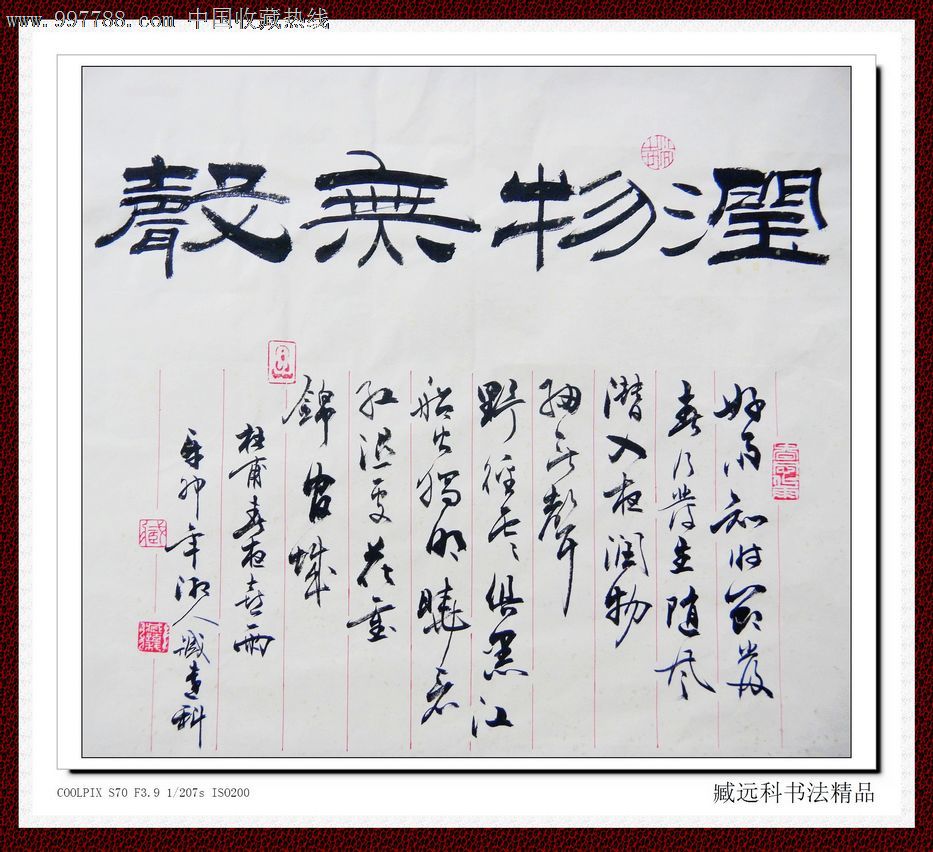 www.997788.com 中国收藏热线
潤物無聲
好雨知时節當
春乃發生随风
潜入夜润物
细无聲
野徑云俱黑江
船火獨明曉看
红湿處花重
錦官城
杜甫春夜喜雨
辛卯年人臧远科
COOLPIX S70 F3.9 1/207s ISO200
臧远科书法精品